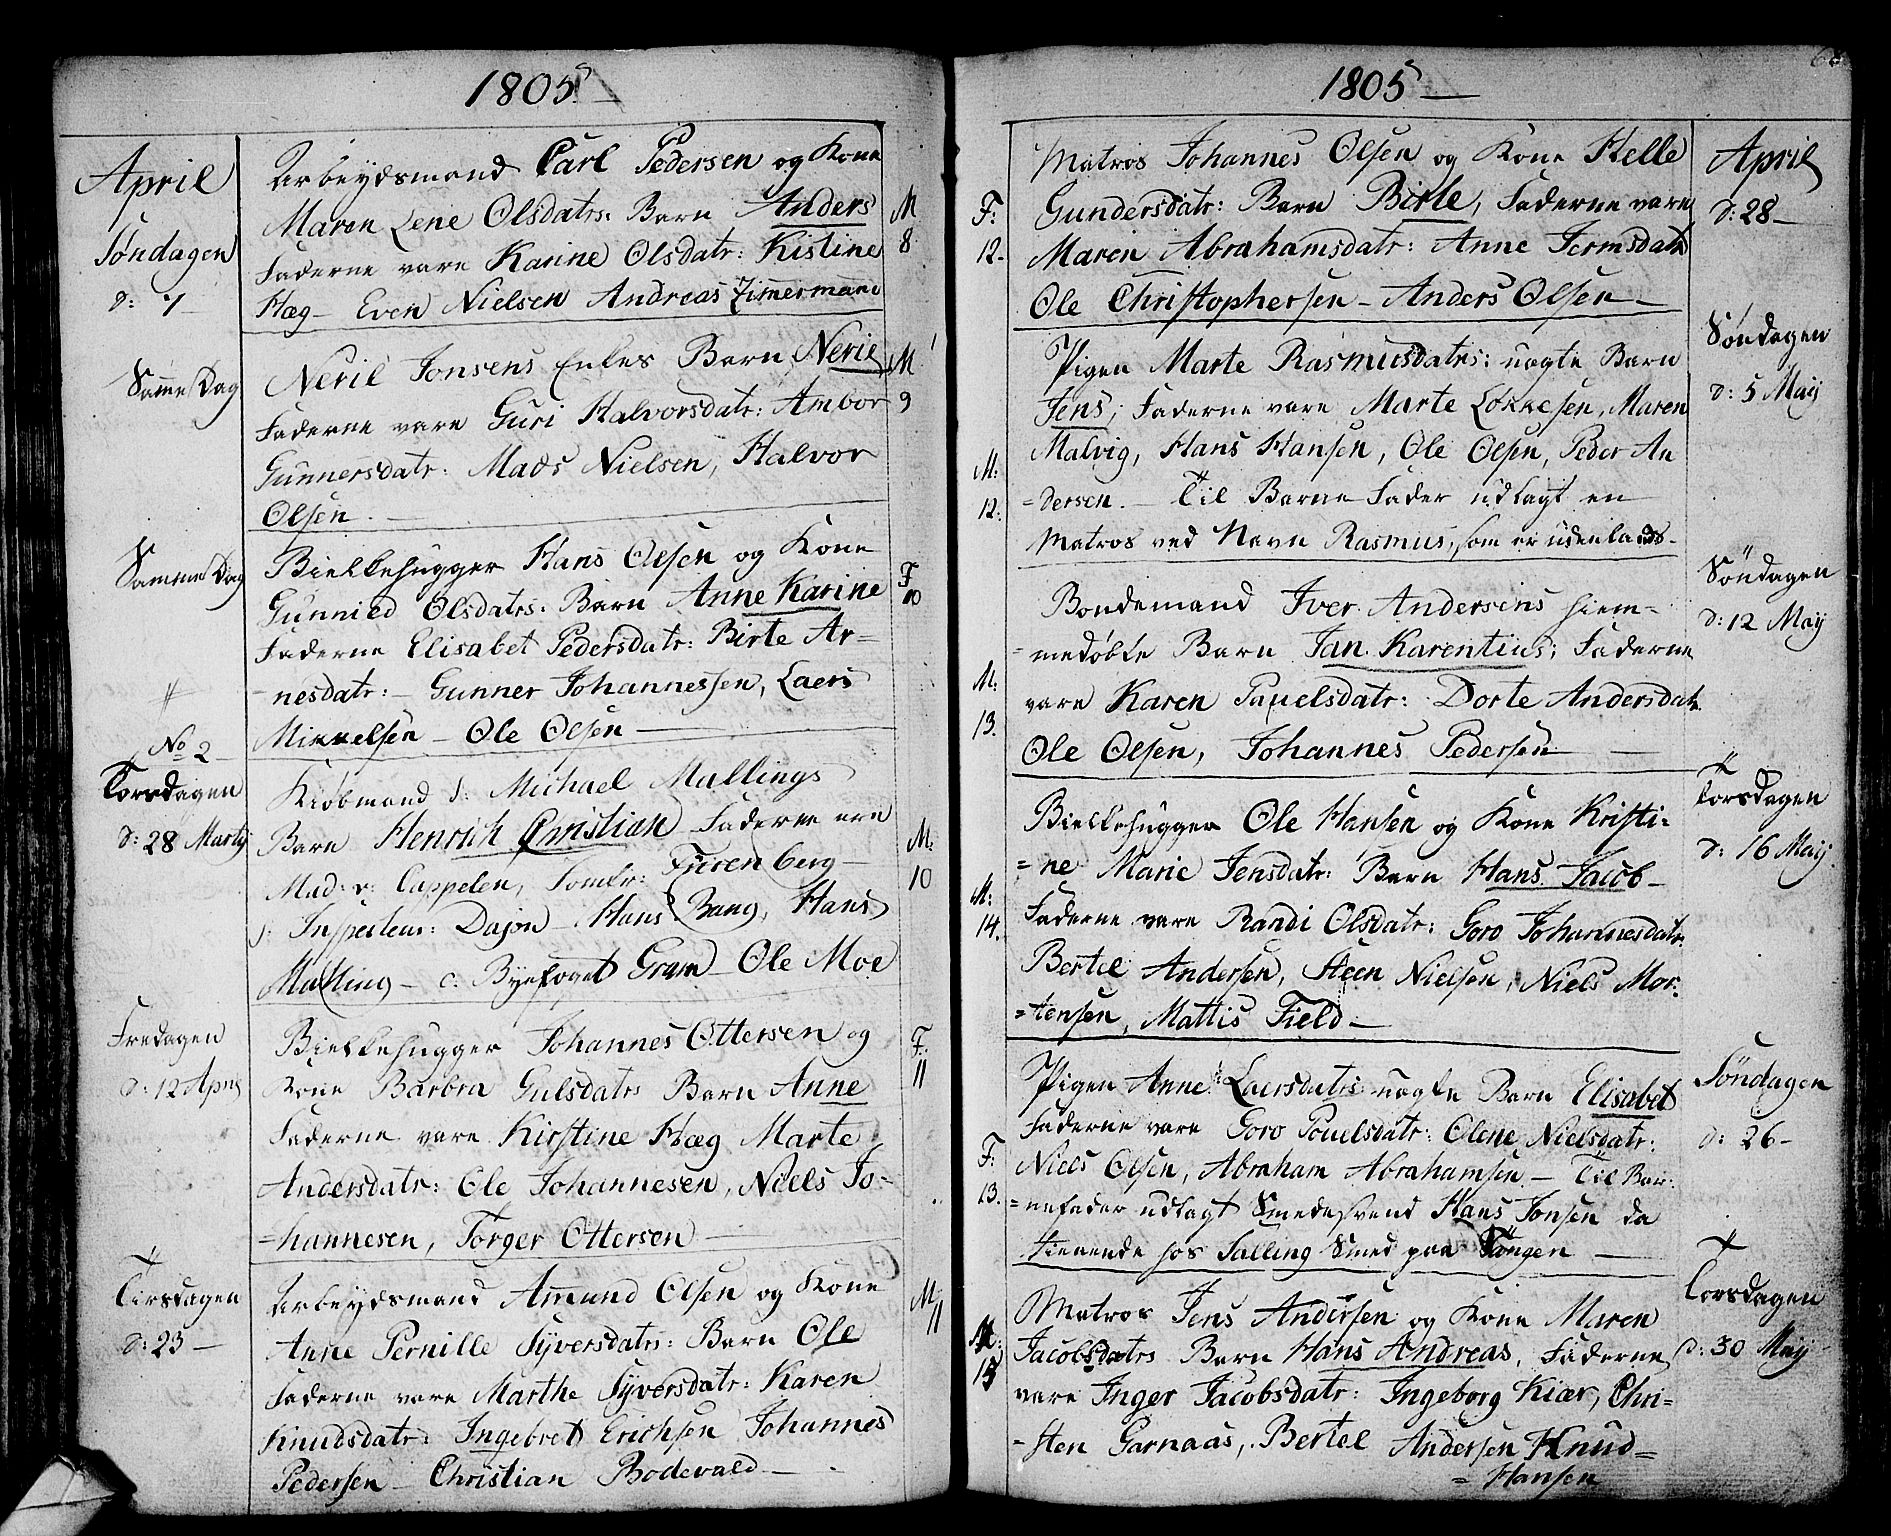 1805
April
Søndagen
d: 7
Arbeydsmand Carl Pedersen og Kone
Maren Lene Olsdatrs: Barn Anders
Faderne vare Karine Olsdatr: Kistine
Hæg – Even Nielsen Andreas Zimmermann
M
8
Samme Dag
Neril Jonsens Enkes Barn Neril
Faderne vare Guri Halvorsdatr: Ambor
Gunnersdatr: Mads Nielsen, Halvor
Olsen. –
M
9
Samme Dag
Bielkehugger Hans Olsen og Kone
Gunnild Olsdatrs: Barn Anne Karine
Faderne Elisabet Pedersdatr: Birte Ar=
=nesdatr: – Gunner Johannessen, Laers
Mikkelsen – Ole Olsen –
F
10
No 2
Torsdagen
d: 28 Martij
Kiøbmand S: Michael Mallings
Barn Henrich Christian Faderne ere
Mad: v: Cappelen, Jomfr: Furenberg –
S: Inspecteur: Dajon – Hans Bang, Hans
Malling – c: Byefoget Gram – Ole Moe
M:
10
Fredagen
d: 12 April
Bielkehugger Johannes Ottersen og
Kone Barbra Gulsdatrs Barn Anne
Faderne vare Kirstine Hæg Marte
Andersdatr: Ole Johannesen, Niels Jo=
=hannesen, Torger Ottersen –
F:
11
Tirsdagen
d: 23 –
Arbeydsmand Amund Olsen og Kone
Anne Pernille Syversdatrs: Barn Ole
Faderne vare Marthe Syversdatr: Karen
Knudsdatr: Ingebret Erichsen Johannes
Pedersen – Christian Bodevald –
M:
11
1805 –
68
F:
12.
Matros Johannes Olsen og Kone Helle
Gundersdatr: Barn Birte, Faderne vare
Maren Abrahamsdatr: Anne Jermsdatr
Ole Christophersen – Anders Olsen –
April
d: 28 –
M:
12.
Pigen Marte Rasmusdatrs: uægte Barn
Jens, Faderne vare Marte Løkkesen, Maren
Malvig, Hans Hansen, Ole Olsen, Peder An
=dersen. – Til Barne Fader udlagt en
Matros ved Navn Rasmus, som er udenlands –
Søndagen
d: 5 Maij
M:
13.
Bondemand Iver Andersens hiem=
=medøbte Barn Jan Karentius; Faderne
vare Karen Pauelsdatr: Dorte Andersdatr
Ole Olsen, Johannes Pedersen –
Søndagen
d: 12 Maij
M:
14.
Bielkehugger Ole Hansen og Kone Kristi=
=ne Marie Jensdatr: Barn Hans Jacob –
Faderne vare Randi Olsdatr: Goro Johannesdatr:
Bertel Andersen, Steen Nielsen, Niels Mor:
=tensen, Mattis Field –
Torsdagen
d: 16 Maij
F:
13.
Pigen Anne Laersdatrs uægte Barn Elisabet
Faderne vare Goro Pouelsdatr: Olene Nielsdatr:
Niels Olsen, Abraham Abrahamsen – Til Bar:
=nefader udlagt Smedesvend Hans Jonsen da
tienende hos Salling Smed paa Tangen –
Søndagen
d: 26 –
M:
15
Matros Jens Andersen og Kone Maren
Jacobsdatrs Barn Hans Andreas, Faderne
vare Inger Jacobsdatr: Ingeborg Kiær, Chri=
=sten Garnaas, Bertel Andersen Knud=
=Hansen
Torsdagen
d: 30 Maij